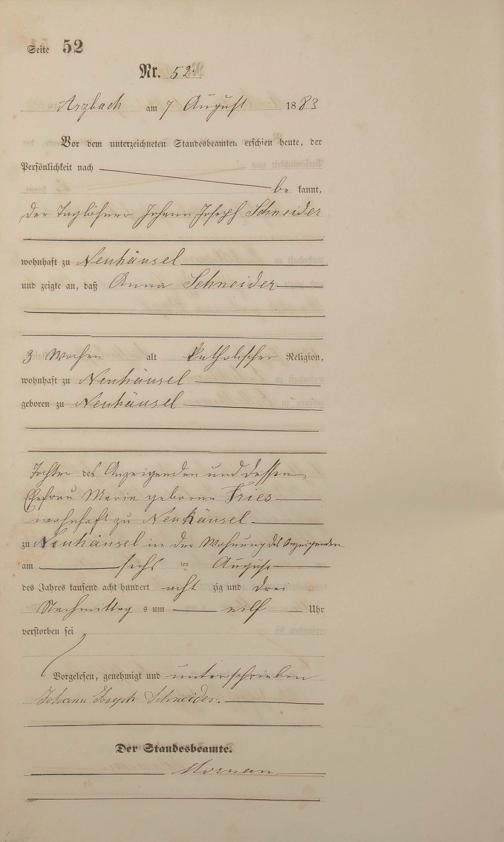 Seite 52
Nr. 52.
Arzbach am 7 August 1883
Vor dem unterzeichneten Standesbeamten erschien heute, der
Persönlichkeit nach
be kannt,
der Taglöhner Johann Joseph Schneider
wohnhaft zu Neuhäusel
und zeigte an, daß Anna Schneider
3 Wochen alt katholischer Religion,
wohnhaft zu Neuhäusel
geboren zu Neuhäusel
Tochter des Anzeigenden und dessen
Ehefrau Maria geborene Fries
wohnhaft zu Neuhäusel
zu Neuhäusel in der Wohnung des Anzeigenden
am sechs ten August
des Jahres tausend acht hundert acht zig und drei
Nachmittag s um elf Uhr
verstorben sei
Vorgelesen, genehmigt und unterschrieben
Johann Joseph Schneider.
Der Standesbeamte.